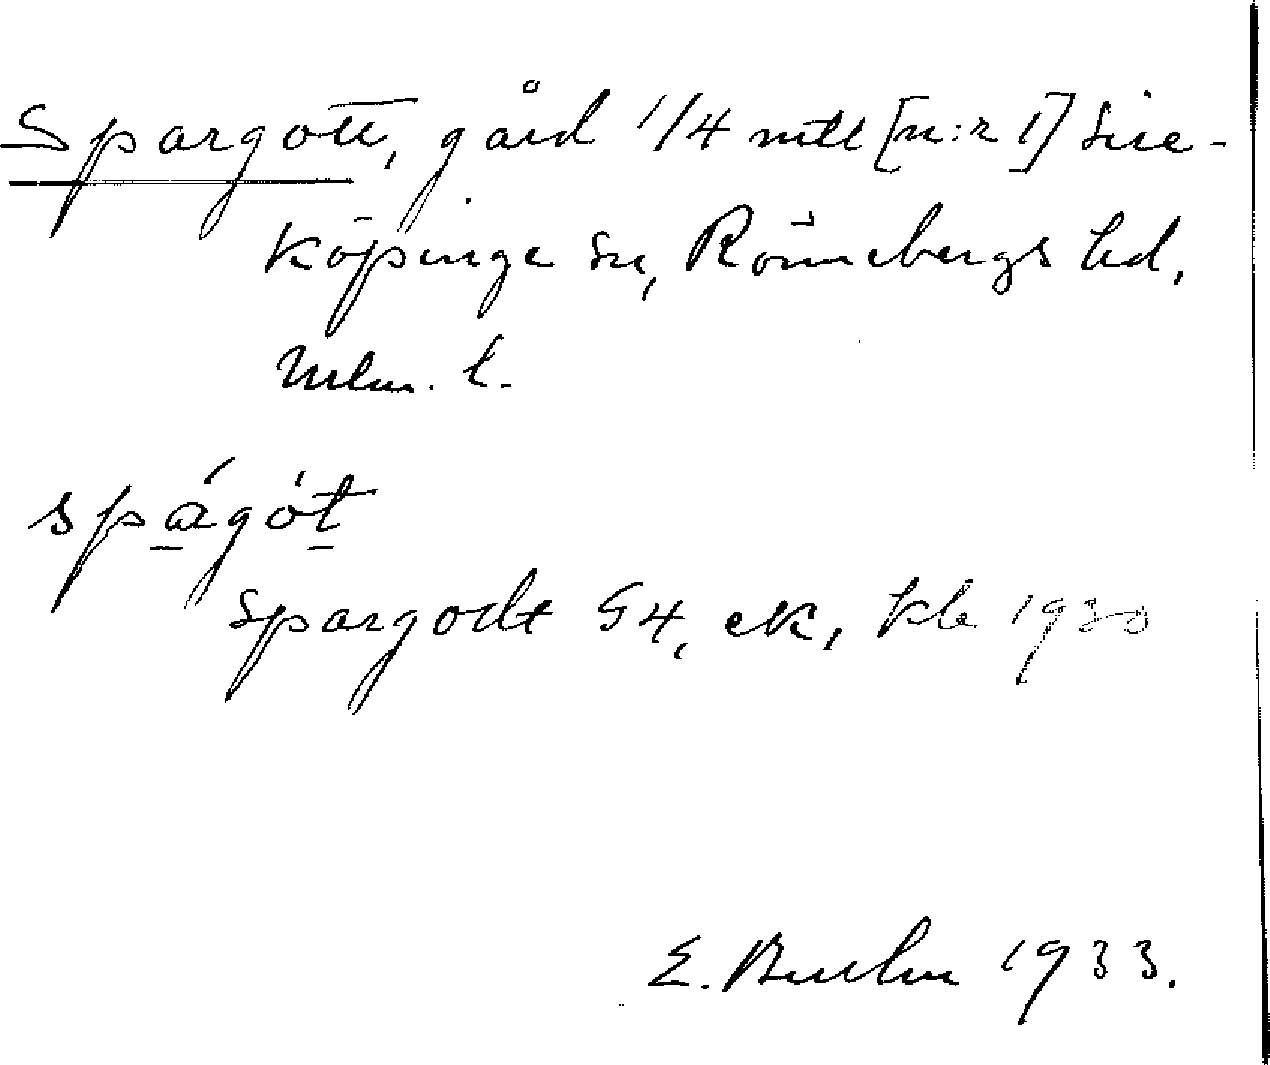 Spargott, gård 1/4 mtl [n:r 1] Sire-
köpinge sn, Rönnebergs hd,
Mlm. l.
spágót
Spargodt G4, ek, kb 1930
E. 1933.